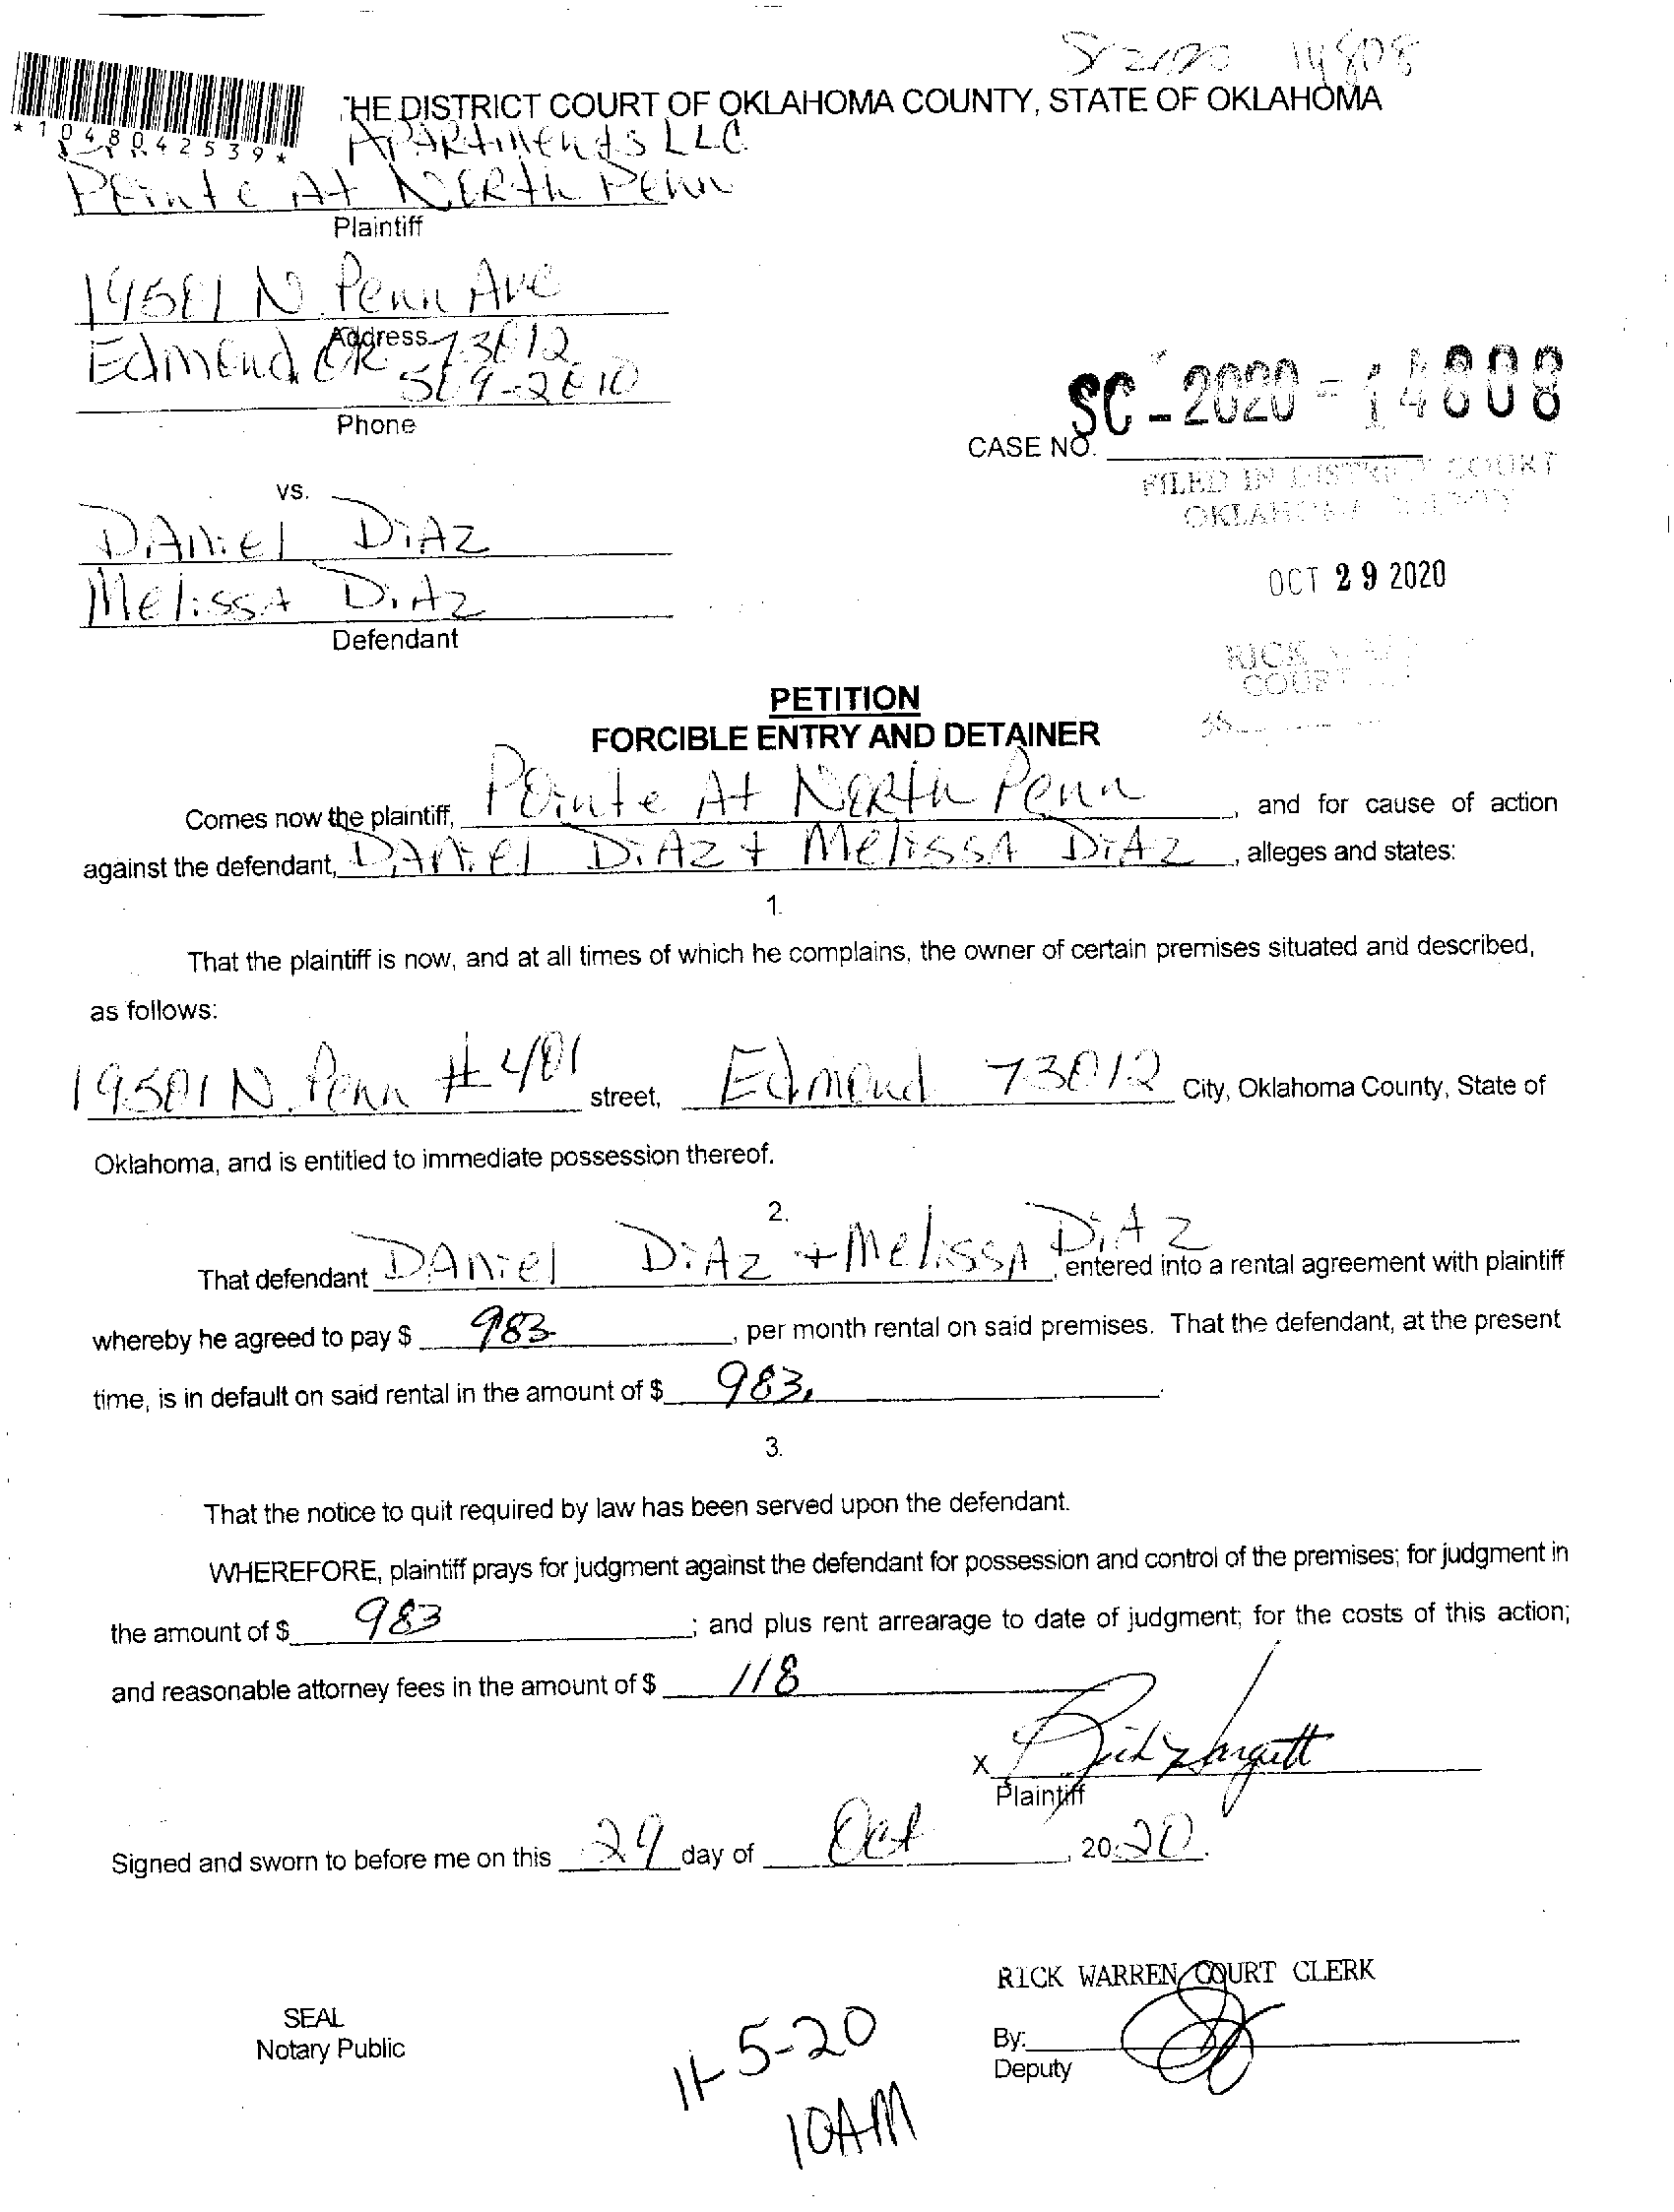 SC 2020 14808
HE DISTRICT COURT OF OKLAHOMA COUNTY, STATE OF OKLAHOMA
*1048042539*
APARtments LLC
Pointe At NoRth Penn
Plaintiff
19501 N. Penn Ave
Address
Edmond OK 73012
509-2010
Phone
SC-2020-14808
CASE NO.
FILED IN DISTRICT COURT
OKLAHOMA COUNTY
vs.
DANiel DiAz
OCT 29 2020
MelissA DiAz
Defendant
RICK
COURT
PETITION
FORCIBLE ENTRY AND DETAINER
Comes now the plaintiff, Pointe At NoRth Penn, and for cause of action
against the defendant, DANiel DiAz + MelissA DiAz, alleges and states:
1.
That the plaintiff is now, and at all times of which he complains, the owner of certain premises situated and described,
as follows:
19501 N. Penn #401 street, Edmond 73012 City, Oklahoma County, State of
Oklahoma, and is entitled to immediate possession thereof.
2.
That defendant DANiel DiAz + MelissA DiAz, entered into a rental agreement with plaintiff
whereby he agreed to pay $ 983, per month rental on said premises. That the defendant, at the present
time, is in default on said rental in the amount of $ 983.
3.
That the notice to quit required by law has been served upon the defendant.
WHEREFORE, plaintiff prays for judgment against the defendant for possession and control of the premises; for judgment in
the amount of $ 983; and plus rent arrearage to date of judgment; for the costs of this action;
and reasonable attorney fees in the amount of $ 118
X
Plaintiff
Signed and sworn to before me on this 29 day of Oct, 2020.
RICK WARREN COURT CLERK
SEAL
Notary Public
By:
Deputy
11-5-20
10AM